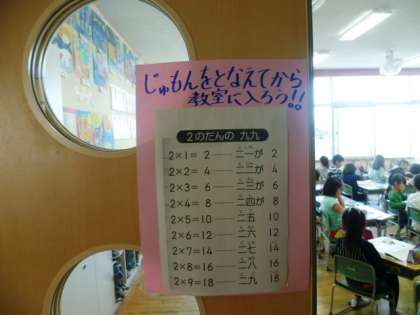 じゅもんをとなえてから
教室に入ろう!!
2のだんの 九九
2×1= 2 ―― 二一が 2
2×2= 4 ―― 二二が 4
2×3= 6 ―― 二三が 6
2×4= 8 ―― 二四が 8
2×5=10 ―― 二五 10
2×6=12 ―― 二六 12
2×7=14 ―― 二七 14
2×8=16 ―― 二八 16
2×9=18 ―― 二九 18